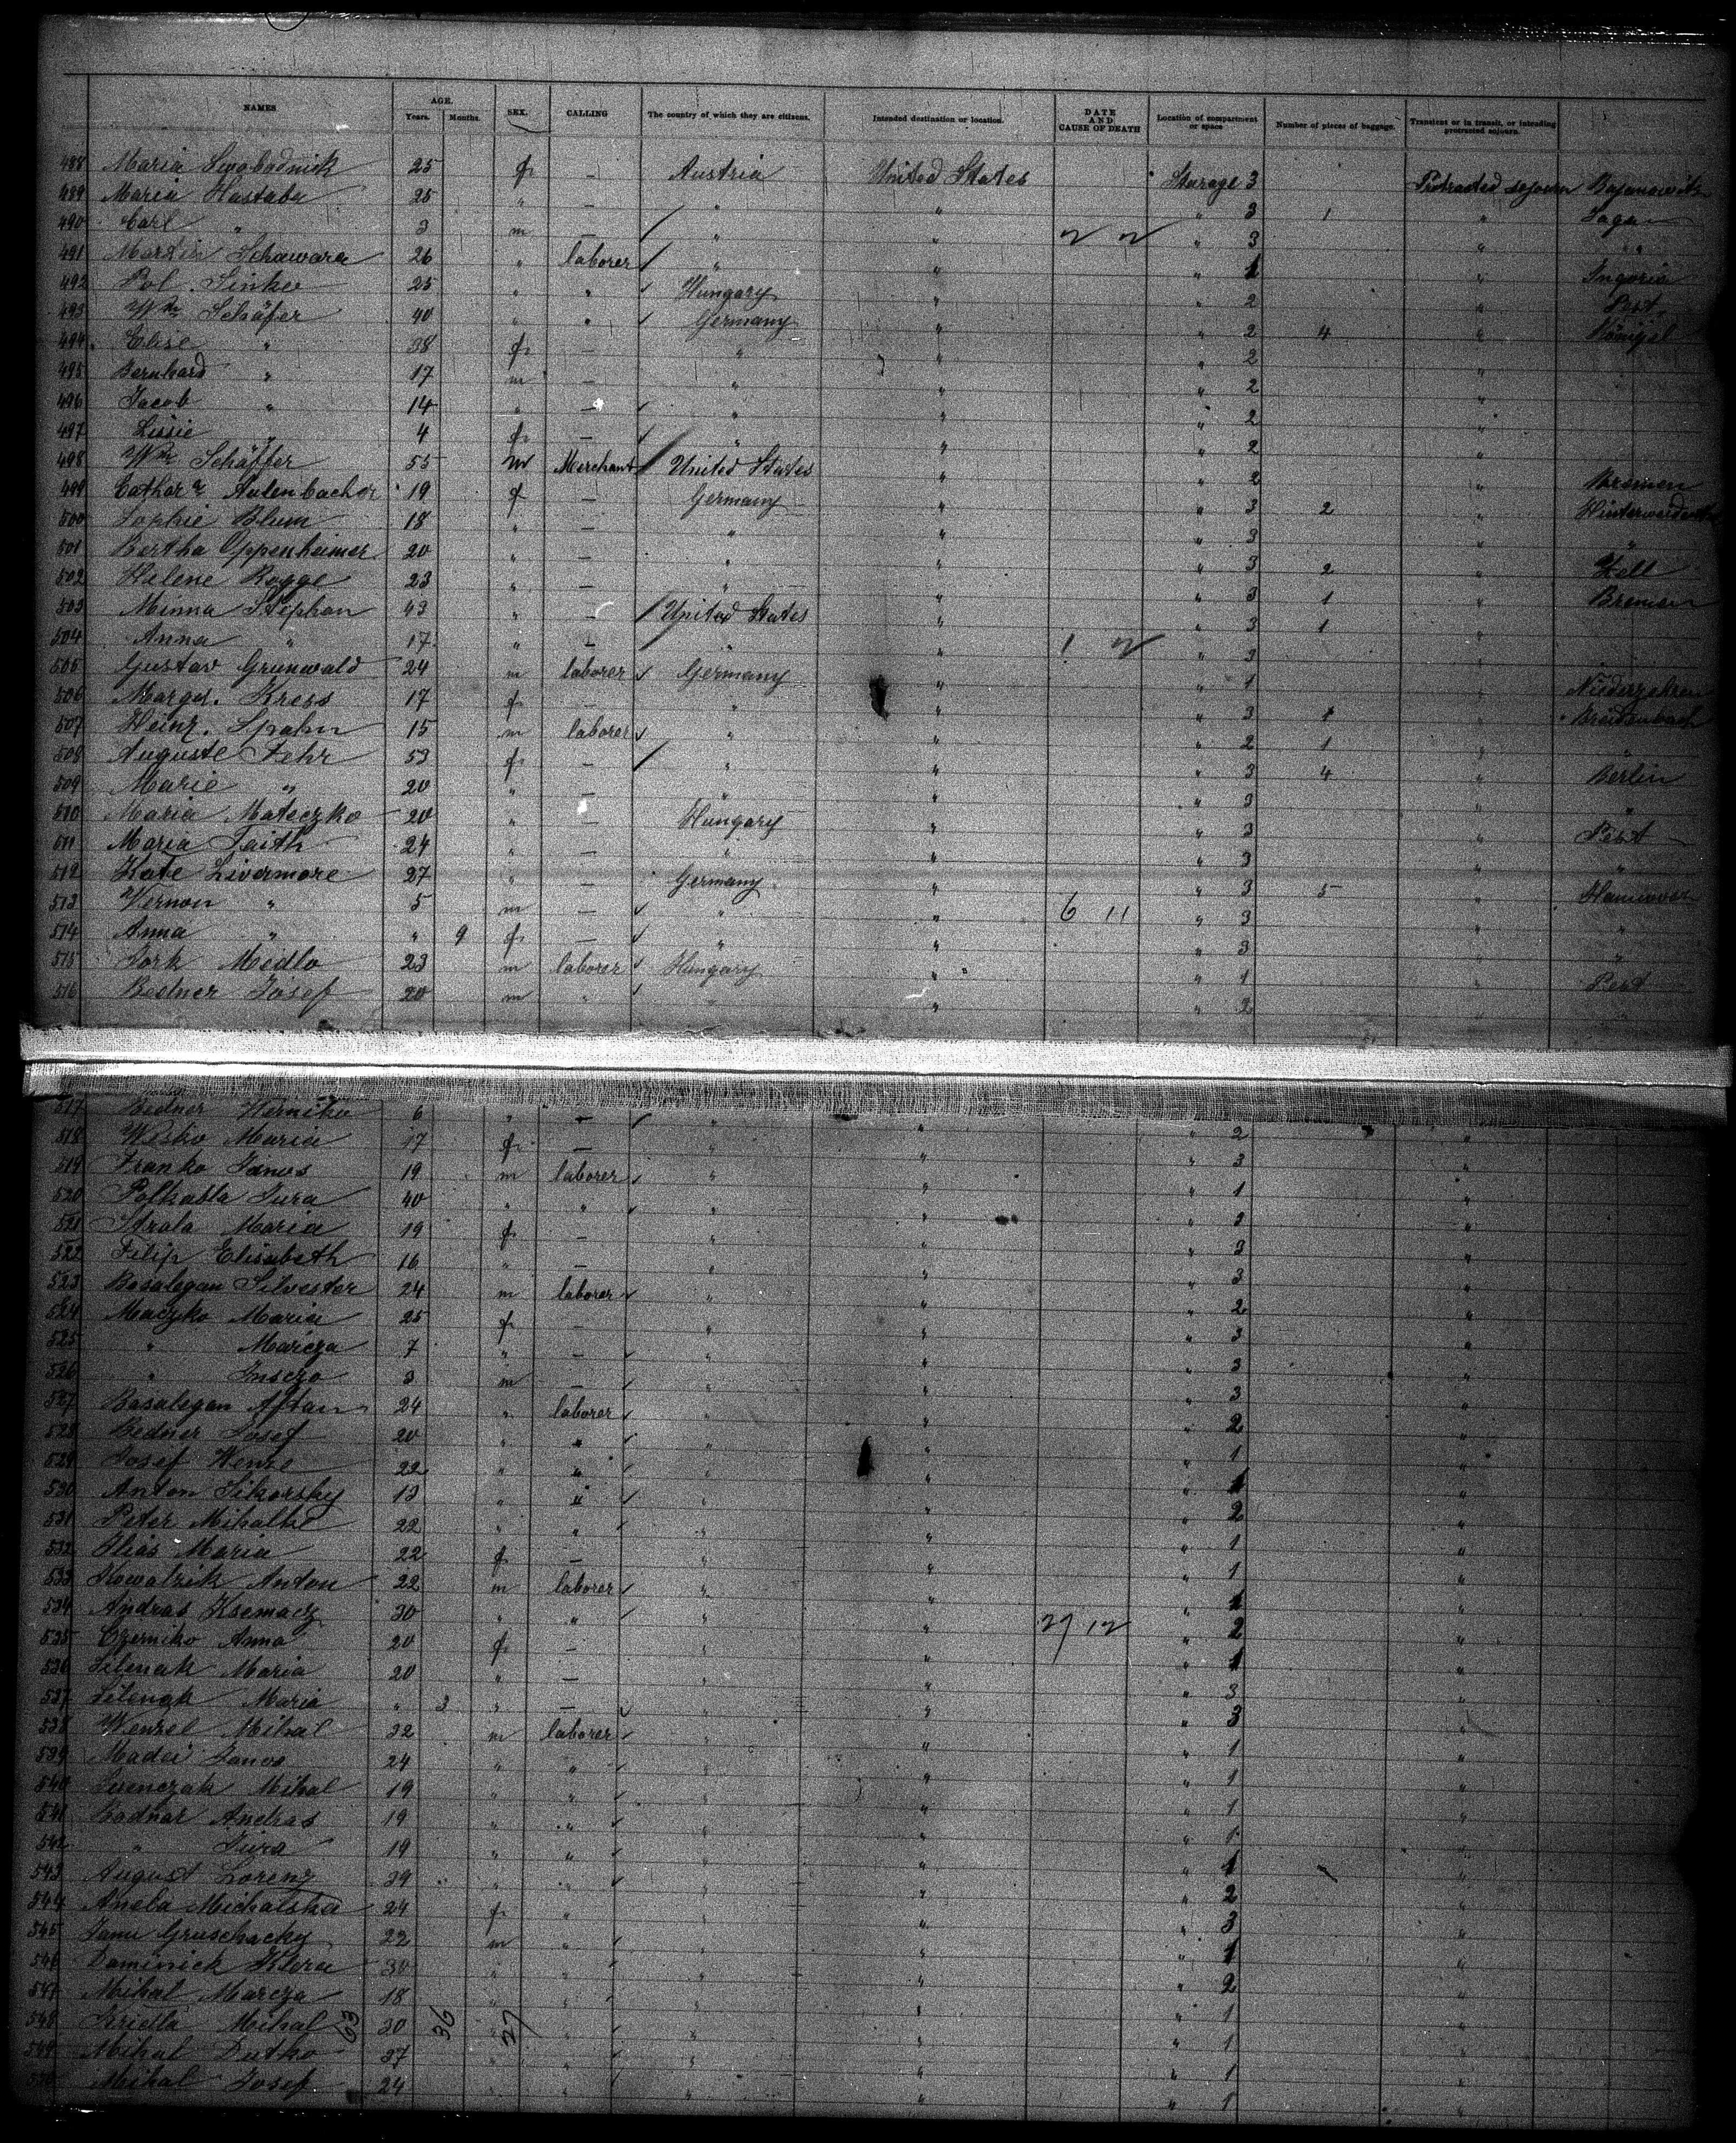 NAMES AGE. Years. Months. SEX. CALLING The country of which they are citizens. Intended destination or location. DATE AND CAUSE OF DEATH Location of compartment or space Number of pieces of baggage. Transient or in transit, or intending protracted sojourn.
488 Maria Swobodnick 25 f — Austria United States Sterage 3 Protracted sojourn
489 Maria Hastaba 25 " — " " " 3 1 "
490 Carl " 3 m — " " 2 2 " 3 " " "
491 Martin Schawara 26 " laborer " " " 1 "
492 Pol Sinko 25 " " Hungary " " 2 " Pest
493 Wm Schäfer 40 " " Germany " " 2 4 "
494 Elise " 38 f — " " " 2 "
495 Bernhard " 17 m — " " " 2 "
496 Jacob " 14 " — " " " 2 "
497 Lissie " 4 f — " " " 2 "
498 Wm Schäffer 55 m Merchant United States " " 2 " Bremen
499 Cathar a Aulenbacher 19 f — Germany " 3 2 "
500 Sophie Blum 18 " — " " " 3 " "
501 Bertha Oppenheimer 20 " — " " " 3 2 " Zell
502 Helene Rogge 23 " — " " " 3 1 " Bremen
503 Minna Stephan 43 " — United States " " 3 1
504 Anna " 17 " — " 1 2 " 3
505 Gustav Grunwald 24 m laborer Germany " " 1 " Niederzehren
506 Margar. Kress 17 f — " " " 3 1 " Breidenbach
507 Heinr. Spahn 15 m laborer " " " 2 1 " "
508 Auguste Fehr 53 f — " " " 3 4 " Berlin
509 Marie " 20 " — " " " 3 " "
510 Maria Mateczko 20 " — Hungary " " 3 " Pest
511 Maria Taith 24 " — " " " 3 " "
512 Kate Livermore 27 " — Germany " " 3 5 " Hannover
513 Vernon " 5 m — " " 6 11 " 3 " "
514 Anna " " 9 f — " " " 3 " "
515 Jork Medlo 23 m laborer Hungary " " 1 " Pest
516 Bedner Josef 20 m " " " " 2
517 Bedner 6 " — " " " 2 "
518 Wesko Maria 17 f — " " " 3 "
519 Franko Janos 19 m laborer " " " 1 "
520 Polkabla Jura 40 " " " " " 2 "
521 Strala Maria 19 f — " " " 3 "
522 Filip Elisabeth 16 " — " " " 3 "
523 Basalegan Silvester 24 m laborer " " " 2 "
524 Maczko Maria 25 f — " " " 3 "
525 " Maricza 7 " — " " " 3 "
526 " 3 m — " " " 3 "
527 Basalegan Aftan 24 " laborer " " " 2 "
528 Bedner Josef 20 " " " " " 1 "
529 Josef Wenze 22 " " " " " 1 "
530 Anton Sikorsky 13 " " " " " 2 "
531 Peter Mihalke 22 " " " " " 1 "
532 Ilias Maria 22 f — " " " 1 "
533 Kowalzik Anton 22 m laborer " " " 1 "
534 Andras Ksemacz 30 " " " " 27 12 " 2 "
535 Czerniko Anna 20 f — " " " 1 "
536 Silenak Maria 20 " — " " " 3 "
537 Silenak Maria " 3 " — " " " 3 "
538 Wenzel Mihal 32 m laborer " " " 1 "
539 Madei Janos 24 " " " " " 1 "
540 Mihal 19 " " " " " 1 "
541 Bodnar Andras 19 " " " " " 1 "
542 " Jura 19 " " " " " 1 "
543 August Lorenz 39 " " " " " 2 "
544 Anela Michalska 24 f " " " " 3 "
545 Janu Gruschacky 22 m " " " " 1 "
546 Dominick Klora 30 " " " " " 2 "
547 Mihal Marcza 18 " " " " " 1 "
548 Mihal 30 " " " " " 1 "
63 36 27
549 Mihal Dutko 37 " " " " " 1 "
550 Mihal Josef 24 " " " " " 1 "